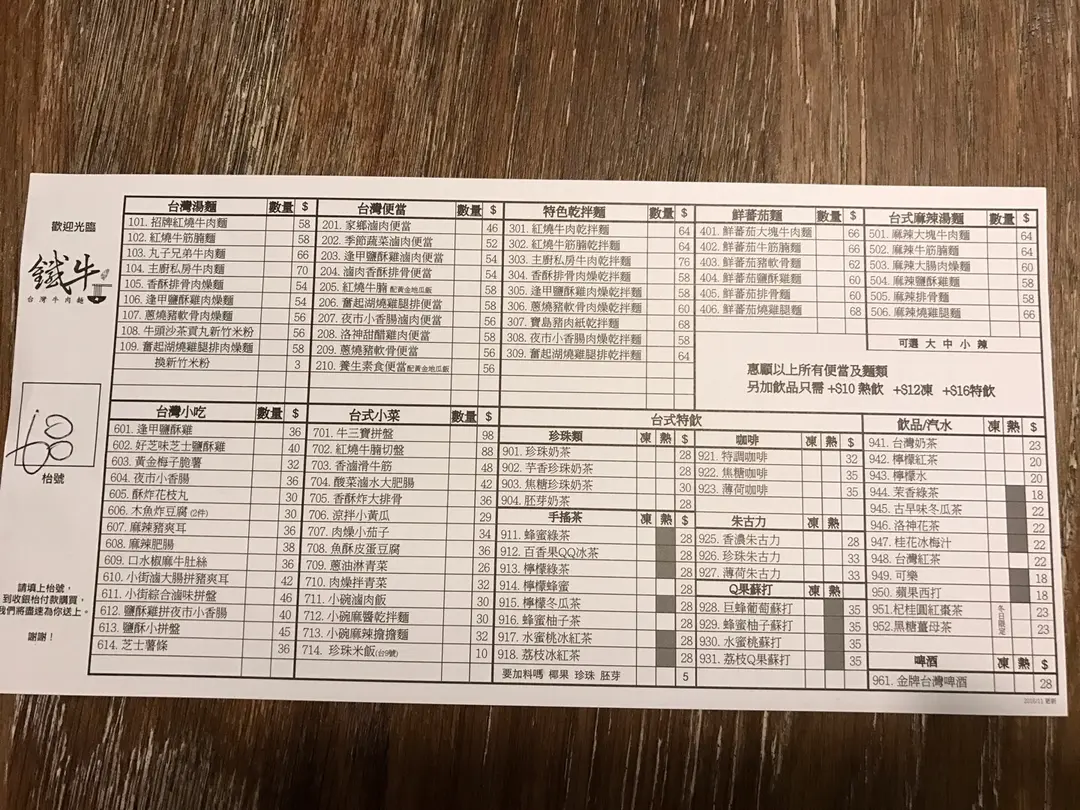 歡迎光臨
鐵牛
台灣牛肉麵
枱號
請填上枱號，
到收銀枱付款購買，
我們將盡速為你送上。
謝謝！
台灣湯麵 數量 $
101. 招牌紅燒牛肉麵 58
102. 紅燒牛筋腩麵 58
103. 丸子兄弟牛肉麵 66
104. 主廚私房牛肉麵 70
105. 香酥排骨肉燥麵 54
106. 逢甲鹽酥雞肉燥麵 54
107. 蔥燒豬軟骨肉燥麵 56
108. 牛頭沙茶貢丸新竹米粉 56
109. 奮起湖燒雞腿排肉燥麵 58
換新竹米粉 3
台灣便當 數量 $
201. 家鄉滷肉便當 46
202. 季節蔬菜滷肉便當 52
203. 逢甲鹽酥雞滷肉便當 54
204. 滷肉香酥排骨便當 54
205. 紅燒牛腩 配黃金地瓜飯 58
206. 奮起湖燒雞腿排便當 58
207. 夜市小香腸滷肉便當 56
208. 洛神甜醋雞肉便當 58
209. 蔥燒豬軟骨便當 56
210. 養生素食便當 配黃金地瓜飯 56
特色乾拌麵 數量 $
301. 紅燒牛肉乾拌麵 64
302. 紅燒牛筋腩乾拌麵 64
303. 主廚私房牛肉乾拌麵 76
304. 香酥排骨肉燥乾拌麵 58
305. 逢甲鹽酥雞肉燥乾拌麵 58
306. 蔥燒豬軟骨肉燥乾拌麵 60
307. 寶島豬肉紙乾拌麵 68
308. 夜市小香腸肉燥乾拌麵 58
309. 奮起湖燒雞腿排乾拌麵 64
鮮蕃茄麵 數量 $
401. 鮮蕃茄大塊牛肉麵 66
402. 鮮蕃茄牛筋腩麵 66
403. 鮮蕃茄豬軟骨麵 62
404. 鮮蕃茄鹽酥雞麵 60
405. 鮮蕃茄排骨麵 60
406. 鮮蕃茄燒雞腿麵 68
台式麻辣湯麵 數量 $
501. 麻辣大塊牛肉麵 64
502. 麻辣牛筋腩麵 64
503. 麻辣大腸肉燥麵 60
504. 麻辣鹽酥雞麵 58
505. 麻辣排骨麵 58
506. 麻辣燒雞腿麵 66
可選 大 中 小 辣
惠顧以上所有便當及麵類
另加飲品只需 +$10 熱飲 +$12凍 +$16特飲
台灣小吃 數量 $
601. 逢甲鹽酥雞 36
602. 好芝味芝士鹽酥雞 40
603. 黃金梅子脆薯 32
604. 夜市小香腸 36
605. 酥炸花枝丸 30
606. 木魚炸豆腐 (2件) 30
607. 麻辣豬爽耳 36
608. 麻辣肥腸 38
609. 口水椒麻牛肚絲 36
610. 小街滷大腸拼豬爽耳 42
611. 小街綜合滷味拼盤 46
612. 鹽酥雞拼夜市小香腸 40
613. 鹽酥小拼盤 45
614. 芝士薯條 36
台式小菜 數量 $
701. 牛三寶拼盤 98
702. 紅燒牛腩切盤 88
703. 香滷滑牛筋 48
704. 酸菜滷水大肥腸 42
705. 香酥炸大排骨 36
706. 涼拌小黃瓜 29
707. 肉燥小茄子 34
708. 魚酥皮蛋豆腐 36
709. 蔥油淋青菜 26
710. 肉燥拌青菜 32
711. 小碗滷肉飯 30
712. 小碗麻醬乾拌麵 30
713. 小碗麻辣擔擔麵 32
714. 珍珠米飯(台9號) 10
台式特飲
珍珠類 凍 熱 $
901. 珍珠奶茶 28
902. 芋香珍珠奶茶 28
903. 焦糖珍珠奶茶 30
904. 胚芽奶茶 28
手搖茶 凍 熱 $
911. 蜂蜜綠茶 28
912. 百香果QQ冰茶 28
913. 檸檬綠茶 28
914. 檸檬蜂蜜 28
915. 檸檬冬瓜茶 28
916. 蜂蜜柚子茶 28
917. 水蜜桃冰紅茶 28
918. 荔枝冰紅茶 28
要加料嗎 椰果 珍珠 胚芽 5
咖啡 凍 熱 $
921. 特調咖啡 32
922. 焦糖咖啡 35
923. 薄荷咖啡 35
朱古力 凍 熱
925. 香濃朱古力 28
926. 珍珠朱古力 33
927. 薄荷朱古力 33
Q果蘇打 凍 熱
928. 巨蜂葡萄蘇打 35
929. 蜂蜜柚子蘇打 35
930. 水蜜桃蘇打 35
931. 荔枝Q果蘇打 35
飲品/汽水 凍 熱 $
941. 台灣奶茶 23
942. 檸檬紅茶 20
943. 檸檬水 20
944. 茉香綠茶 18
945. 古早味冬瓜茶 22
946. 洛神花茶 22
947. 桂花冰梅汁 22
948. 台灣紅茶 22
949. 可樂 18
950. 蘋果西打 18
951. 杞桂圓紅棗茶 23
952. 黑糖薑母茶 23
冬日限定
啤酒 凍 熱 $
961. 金牌台灣啤酒 28